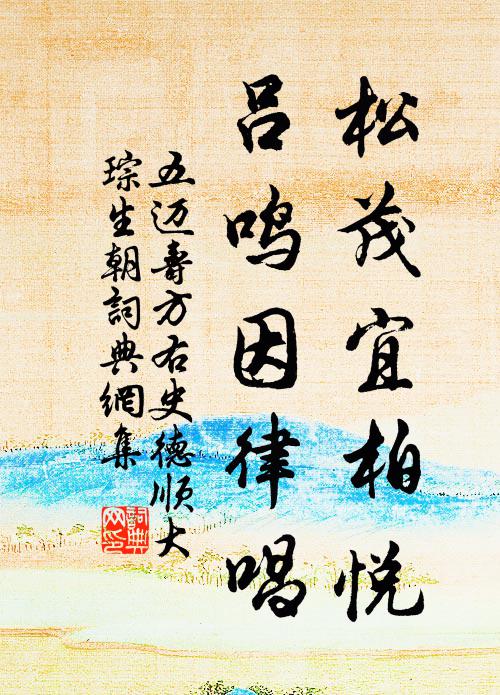 松茂宜柏悦
吕鸣因律唱
五迈寿方右史德顺大
琮生朝詞典網集
詞典